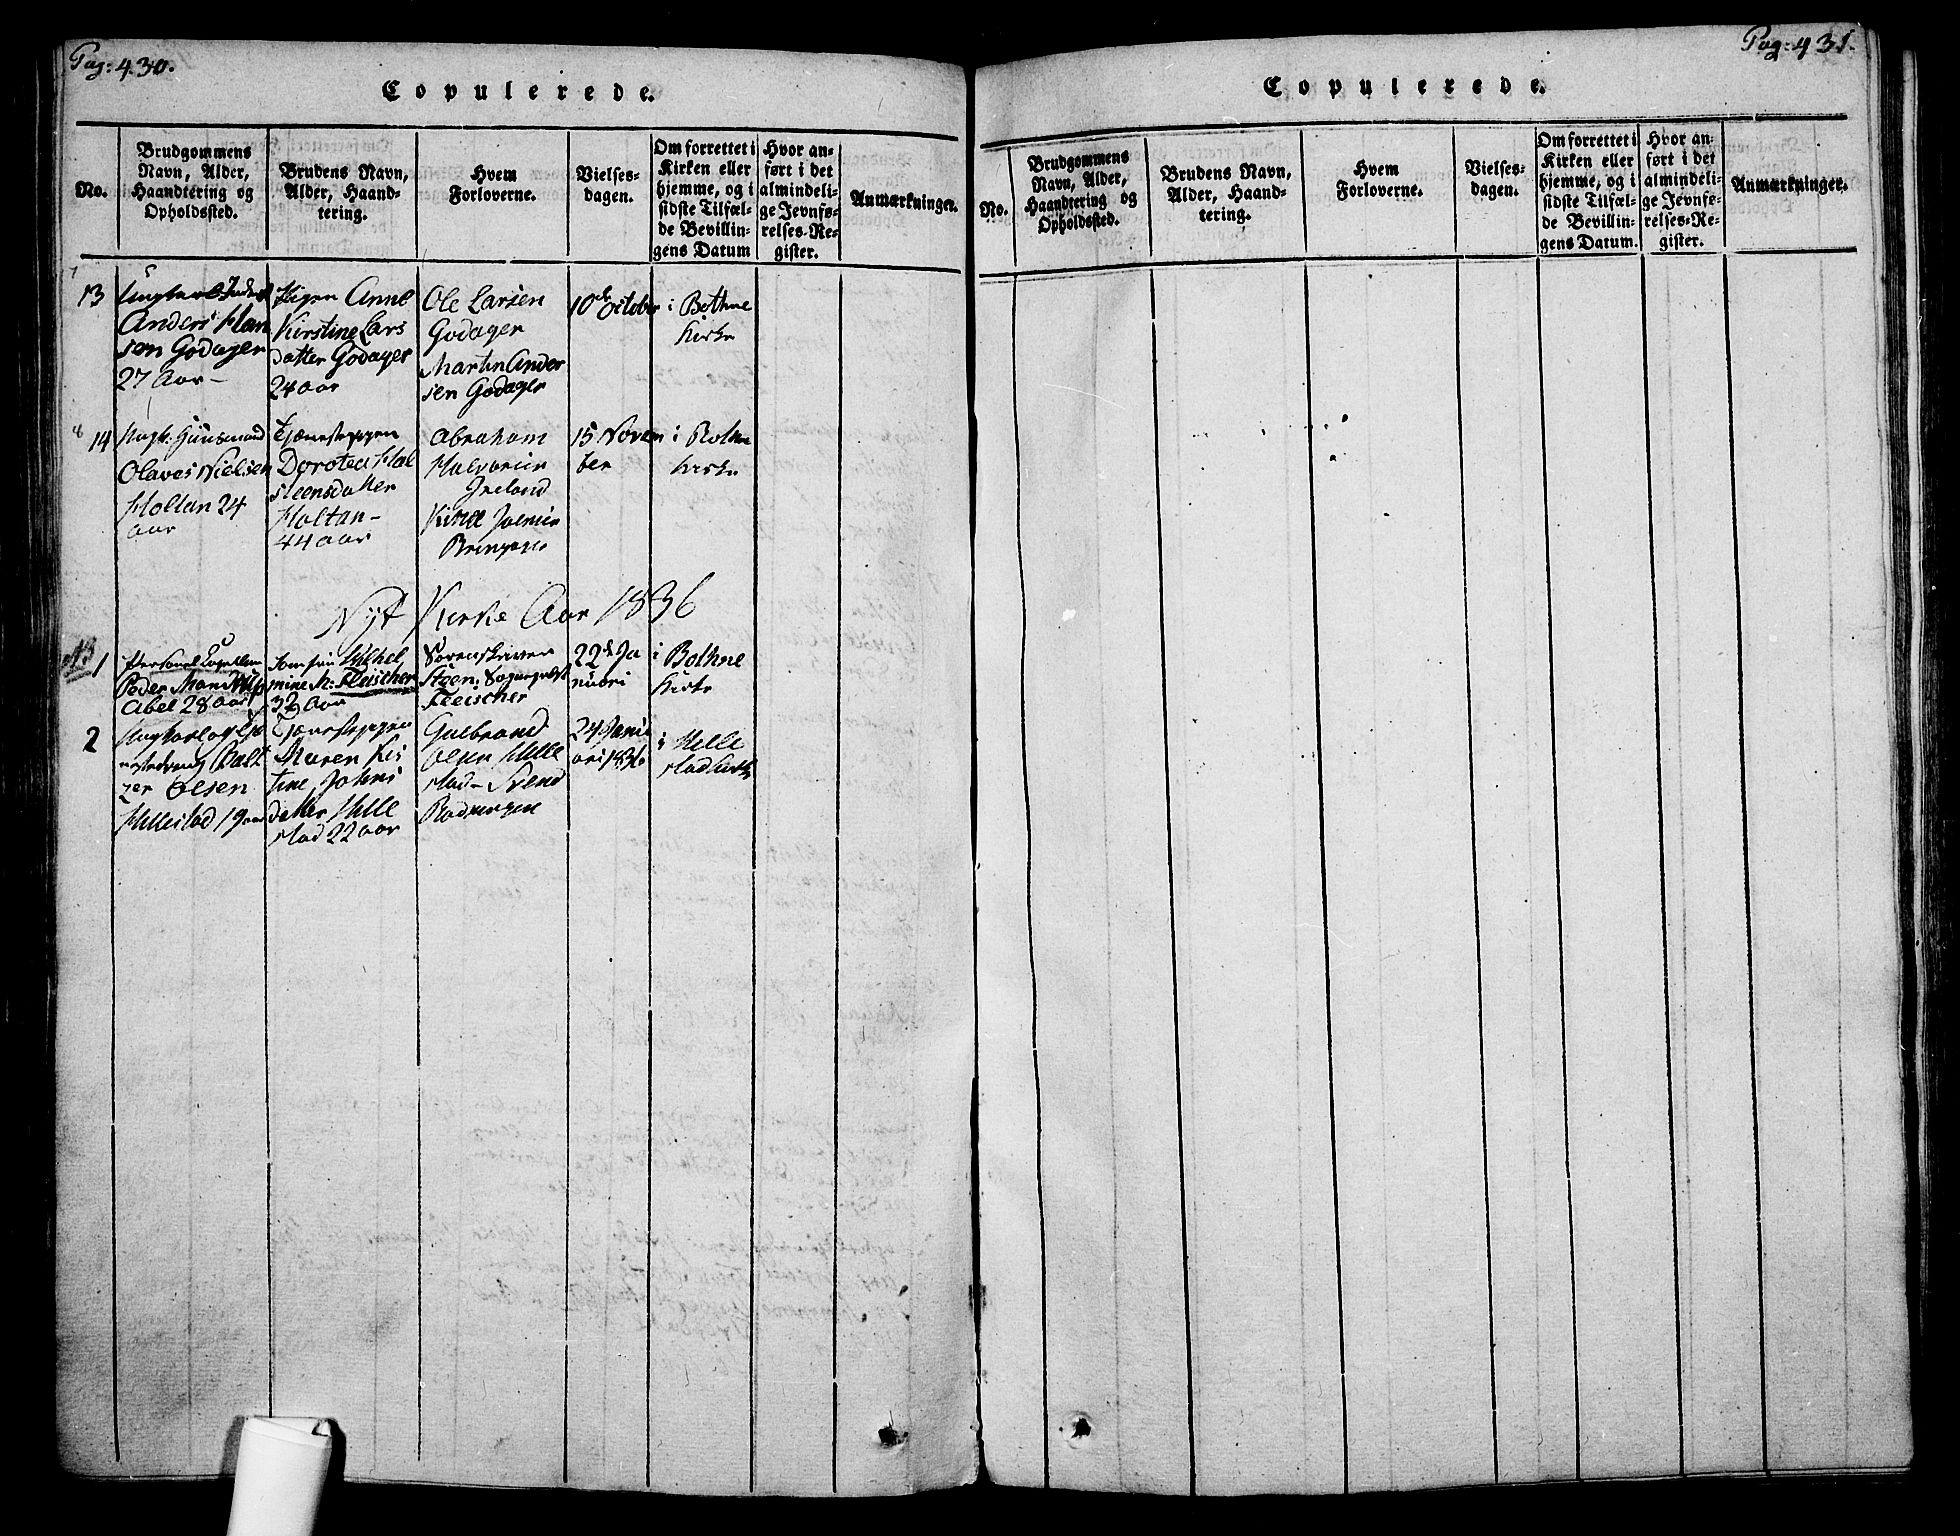 Pag: 430.
Copulerede.
No.
Brudgommens
Navn, Alder,
Haandtering og
Opholdssted.
Brudens Navn,
Alder, Haand-
tering.
Hvem
Forloverne.
Vielses-
dagen.
Om forrettet i
Kirken eller
hjemme, og i
sidste Tilfæl-
de Bevillin-
gens Datum
Hvor an-
ført i det
almindeli-
ge Jevnfø-
relses-Re-
gister.
Anmærkninger.
7
13
Ungkarl
Anders Han
sen Godager
27 Aar -
Pigen Anne
Kirstine Lars
datter Godager
24 aar
Ole Larsen
Godager
Martin Ander
sen Godager
10de October
i Bothne
Kirke
8
14
Ungk: Huusmand
Olaves Nielsen
Holtan 24
aar
Tjenestepigen
Dorotea Hal
steensdatter
Holtan -
44 aar
Abraham
Halvorsen
Ireland
15 Novem
ber
i Bothne
Kirke
Nyt Kirke Aar 1836
1
Personel Capellan
Peder Mandrup
Abel 28 aar
Jomfru Vilhel
mine M: Fleischer
32 Aar
Sorenskriver
Steen: Sogneprest
Fleischer
22de Ja
nuari
i Bothne
Kirke
2
Ungkarl og
Balt
zer Olsen
Hillestad 19 aar
Tjenestepigen
Maren Kis
tine Johns
datter Hille
stad 22 aar
Gulbrand
Olsen Hille
stad - Svend
24 Janu
ari 1836
i Hille
stad Kirke
Pag: 431.
Copulerede.
No.
Brudgommens
Navn, Alder,
Haandtering og
Opholdssted.
Brudens Navn,
Alder, Haand-
tering.
Hvem
Forloverne.
Vielses-
dagen.
Om forrettet i
Kirken eller
hjemme, og i
sidste Tilfæl-
de Bevillin-
gens Datum.
Hvor an-
ført i det
almindeli-
ge Jevnfø-
relses-Re-
gister.
Anmærkninger.